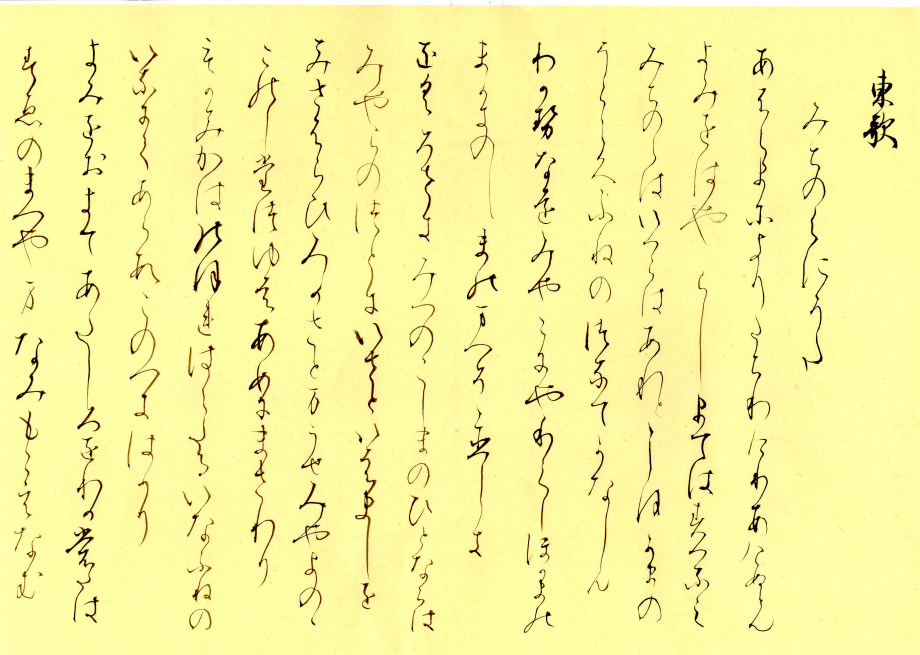 東歌
みちのくにうた
あふくまにきりたちわたりあけぬとも
きみをはやらしまてはすへなし
みちのくはいつくはあれとしほかまの
うらこくふねのつなてかなしも
わか勢こをみやこにやりてしほかまの
まかきのしまのまつそ恋しき
をくろさきみつのこしまのひとならは
みやこのつとにいさといはましを
みさふらひみかさとまうせみやきのゝ
このしたつゆはあめにまされり
もかみかはのほれはくたるいなふねの
いなにはあらすこのつきはかり
きみをおきてあたし心をわかもたは
すゑのまつやまなみもこえなむ